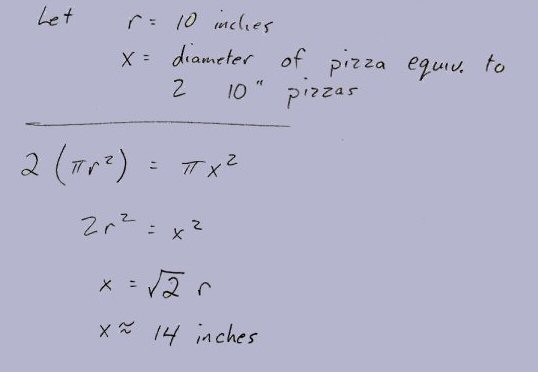 Let r = 10 inches
x = diameter of pizza equiv. to
2 10" pizzas
2 (πr²) = πx²
2r² = x²
x = √2 r
x ≈ 14 inches